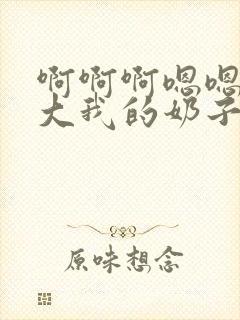 啊啊啊嗯嗯
大我的奶子
原味想念